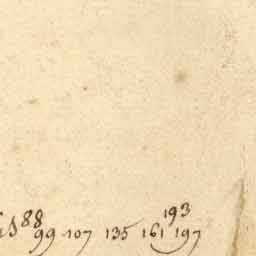 88 193
99 107 135 161 197